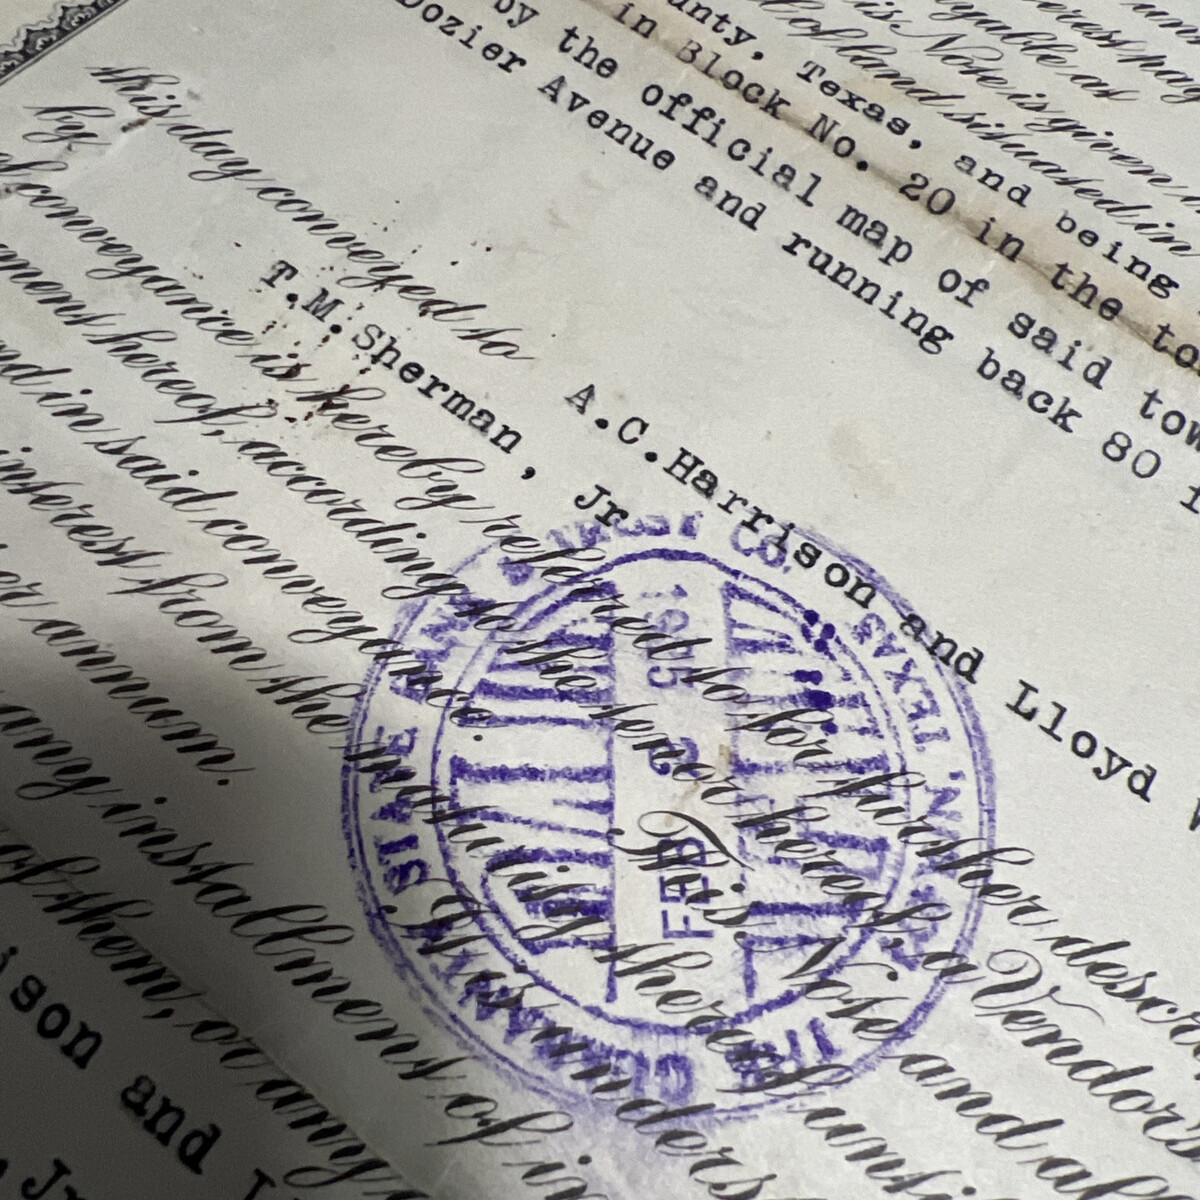 unty, Texas, and being
in Block No. 20 in the to
by the official map of said tow
Dozier Avenue and running back 80 f
yable as
is Note is given
t of land situated in
this day conveyed to A.C.Harrison and Lloyd W
by T.M.Sherman, Jr
of conveyance is hereby referred to for further descri
ment hereof, according to the tenor hereof, a Vendor's
nd in said conveyance.
interest from the maturity thereof unti
er annum. This Note and al
any installment of in
of them, or any
It is unders
ison and L
Jr
STATE BANK & TRUST CO.
TEXAS
FEB
1925